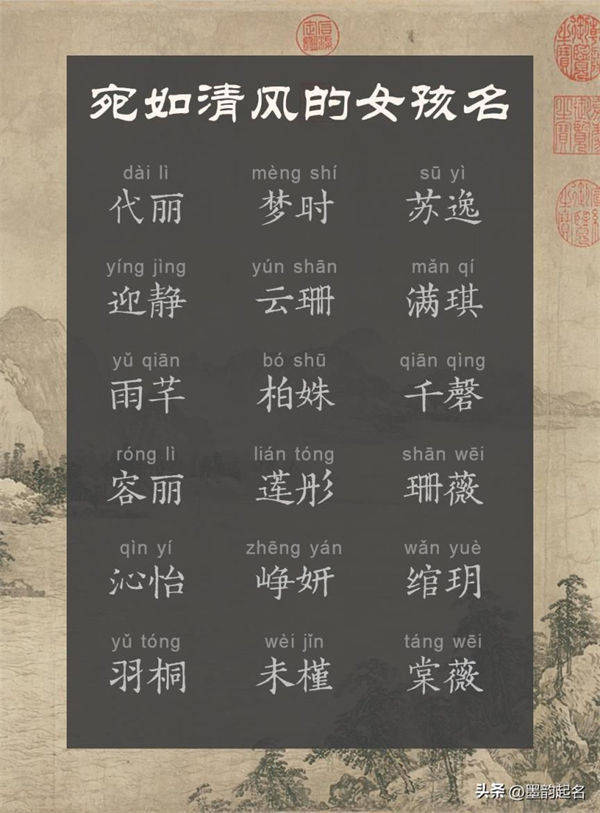 宛如清风的女孩名
dài lì mèng shí sū yì
代丽 梦时 苏逸
yíng jìng yún shān mǎn qí
迎静 云珊 满琪
yǔ qiān bó shū qiān qìng
雨芊 柏姝 千磬
róng lì lián tóng shān wēi
容丽 莲彤 珊薇
qìn yí zhēng yán wǎn yuè
沁怡 峥妍 绾玥
yǔ tóng wèi jǐn táng wēi
羽桐 未槿 棠薇
头条 @墨韵起名